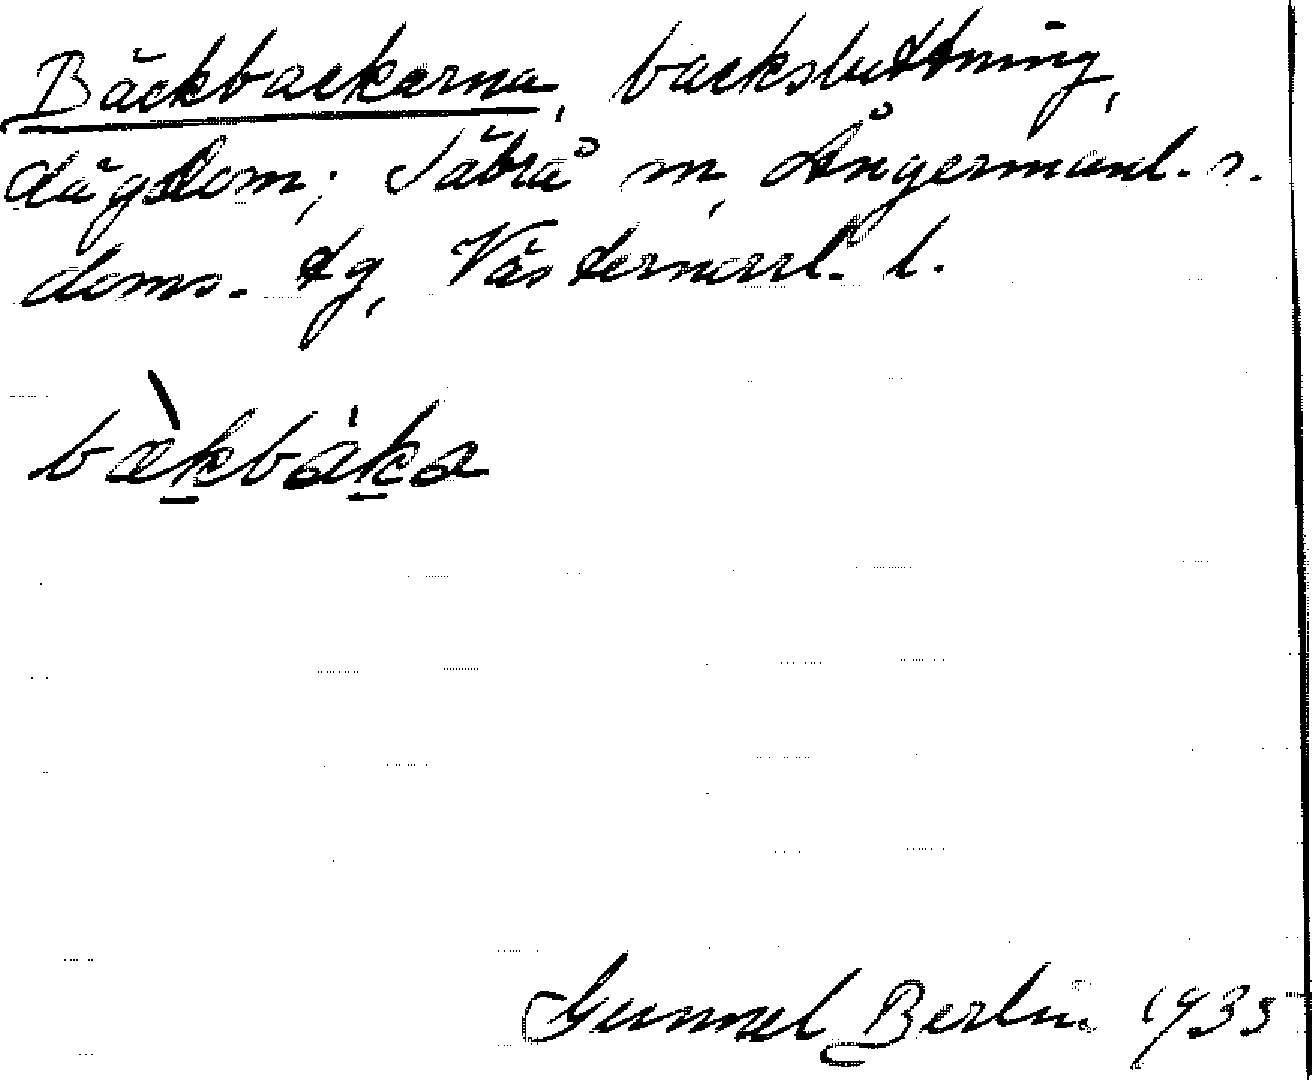 Bäckbackerna, backsluttning,
dågsdom; Säbrå sn, Ångermanl. s.
doms. tg, Västernorrl. l.
bæ̀kbáka
Gunnel Berlin 1935